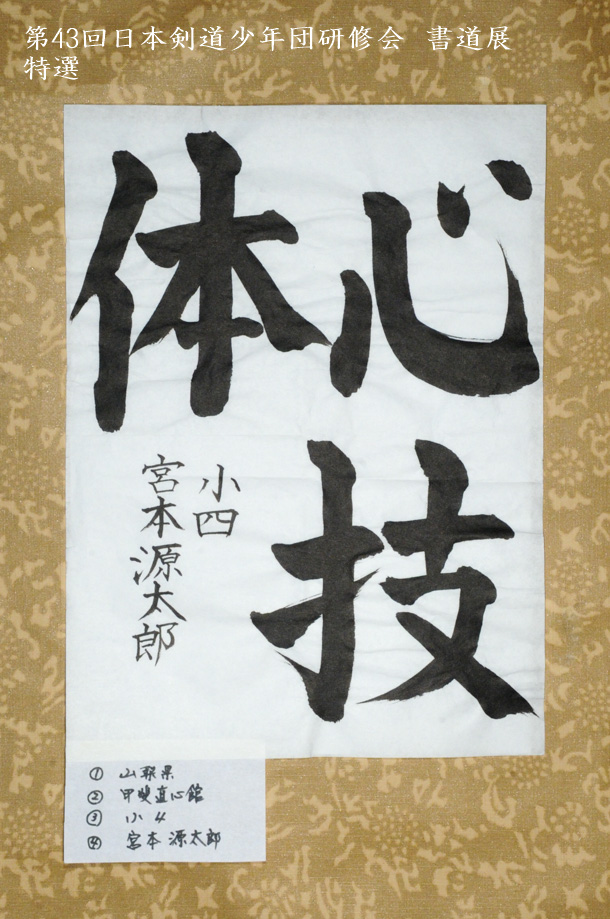 第43回日本剣道少年団研修会 書道展
特選
心技
体
小四
宮本源太郎
① 山梨県
② 甲斐直心館
③ 小4
④ 宮本源太郎